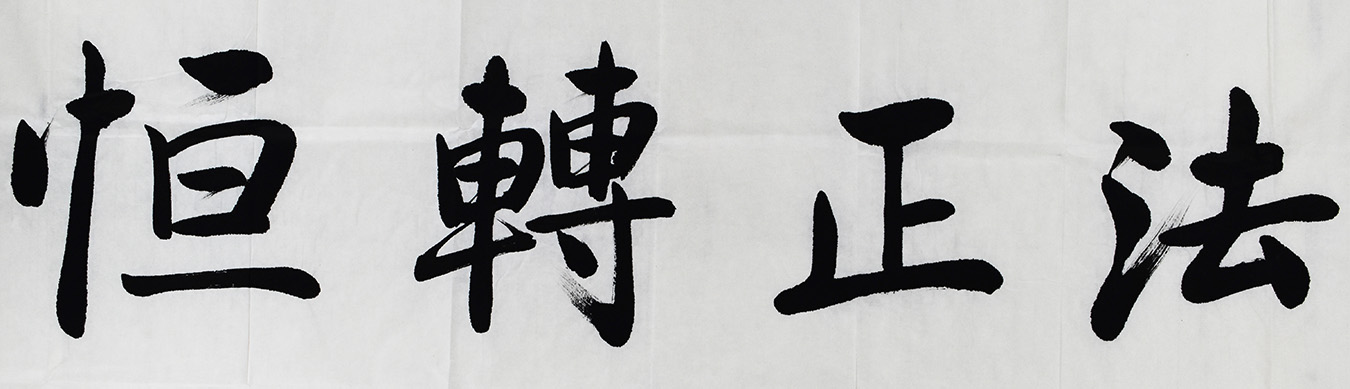 恒轉正法